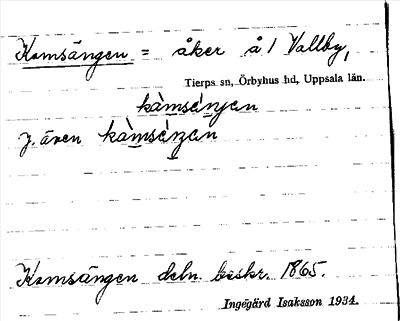 Kamsängen = åker å 1 Vallby,
Tierps sn, Örbyhus hd, Uppsala län.
kàmséŋen
J. även kàmséŋan
Kamsängen deln. beskr. 1865.
Ingegärd Isaksson 1934.